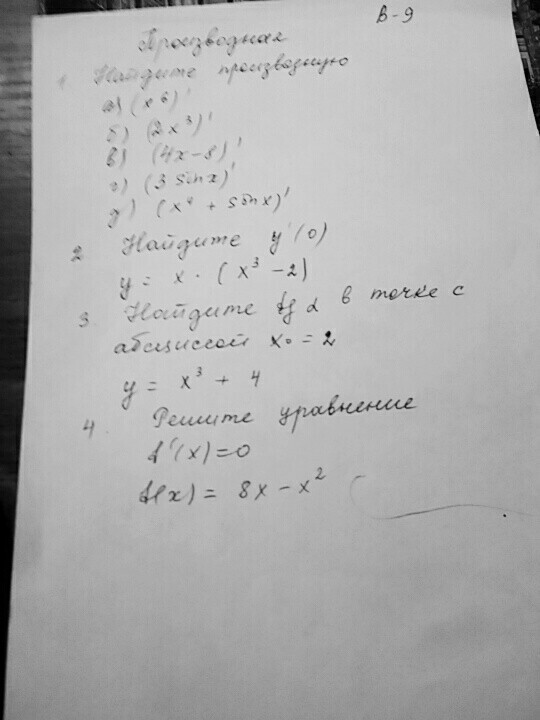 В-9
Производная
1 Найдите производную
а) (x⁶)'
б) (2x³)'
в) (4x-8)'
г) (3 sin x)'
д) (x⁴ + sin x)'
2 Найдите y'(0)
y = x · (x³ - 2)
3 Найдите tg α в точке с
абсциссой x₀ = 2
y = x³ + 4
4. Решите уравнение
f'(x) = 0
f(x) = 8x - x²